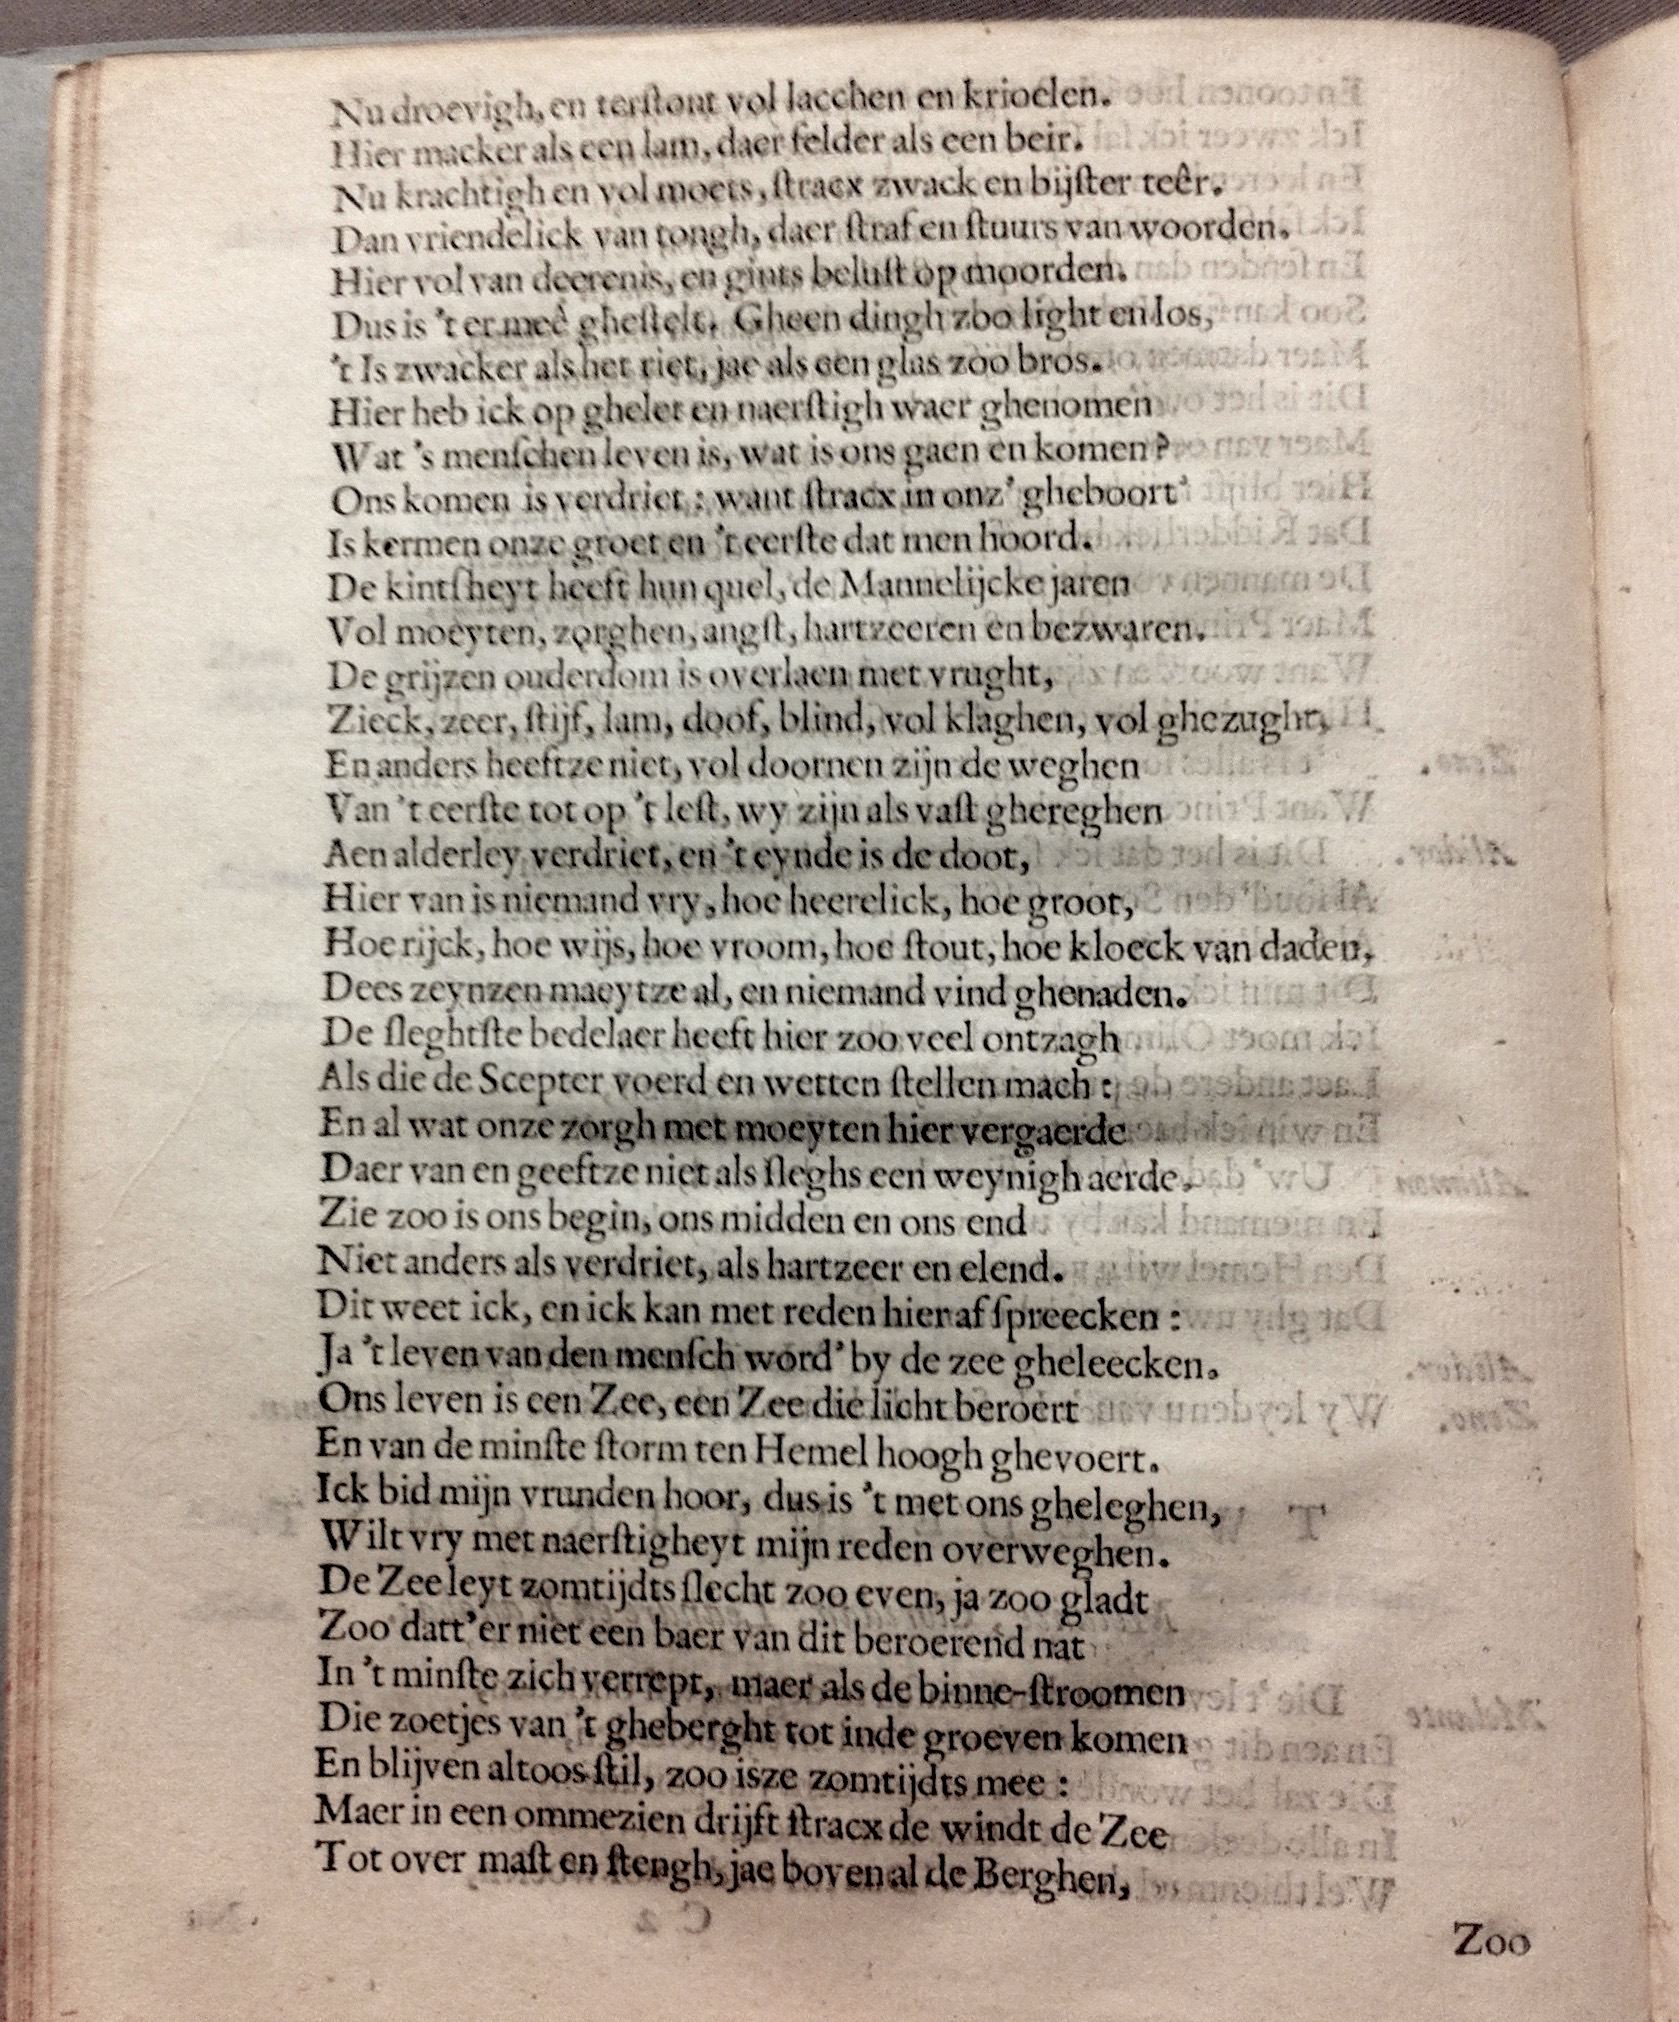 Nu droevigh, en terſtont vol lacchen en krioelen.
Hier macker als een lam, daer felder als een beir.
Nu krachtigh en vol moets, ſtracx zwack en bijſter teêr.
Dan vriendelick van tongh, daer ſtraf en ſtuurs van woorden.
Hier vol van deerenis, en gints beluſt op moorden.
Dus is 't er meê gheſtelt. Gheen dingh zoo light en los,
't Is zwacker als het riet, jae als een glas zoo bros.
Hier heb ick op ghelet en naerſtigh waer ghenomen
Wat 's menſchen leven is, wat is ons gaen en komen?
Ons komen is verdriet: want ſtracx in onz' gheboort'
Is kermen onze groet en 't eerſte dat men hoord.
De kintſheyt heeft hun quel, de Mannelijcke jaren
Vol moeyten, zorghen, angſt, hartzeeren en bezwaren.
De grijzen ouderdom is overlaen met vrught,
Zieck, zeer, ſtijf, lam, doof, blind, vol klaghen, vol ghezught,
En anders heeftze niet, vol doornen zijn de weghen
Van 't eerſte tot op 't leſt, wy zijn als vaſt ghereghen
Aen alderley verdriet, en 't eynde is de doot,
Hier van is niemand vry, hoe heerelick, hoe groot,
Hoe rijck, hoe wijs, hoe vroom, hoe ſtout, hoe kloeck van daden,
Dees zeynzen maeytze al, en niemand vind ghenaden.
De ſleghtſte bedelaer heeft hier zoo veel ontzagh
Als die de Scepter voerd en wetten ſtellen mach:
En al wat onze zorgh met moeyten hier vergaerde
Daer van en geeftze niet als ſleghs een weynigh aerde.
Zie zoo is ons begin, ons midden en ons end
Niet anders als verdriet, als hartzeer en elend.
Dit weet ick, en ick kan met reden hier af ſpreecken:
Ja 't leven van den menſch word' by de zee gheleecken.
Ons leven is een Zee, een Zee die licht beroert
En van de minſte ſtorm ten Hemel hoogh ghevoert.
Ick bid mijn vrunden hoor, dus is 't met ons gheleghen,
Wilt vry met naerſtigheyt mijn reden overweghen.
De Zee leyt zomtijdts ſlecht zoo even, ja zoo gladt
Zoo datt'er niet een baer van dit beroerend nat
In 't minſte zich verrept, maer als de binne-ſtroomen
Die zoetjes van 't gheberght tot inde groeven komen
En blijven altoos ſtil, zoo isze zomtijdts mee:
Maer in een ommezien drijft ſtracx de windt de Zee
Tot over maſt en ſtengh, jae boven al de Berghen,
Zoo